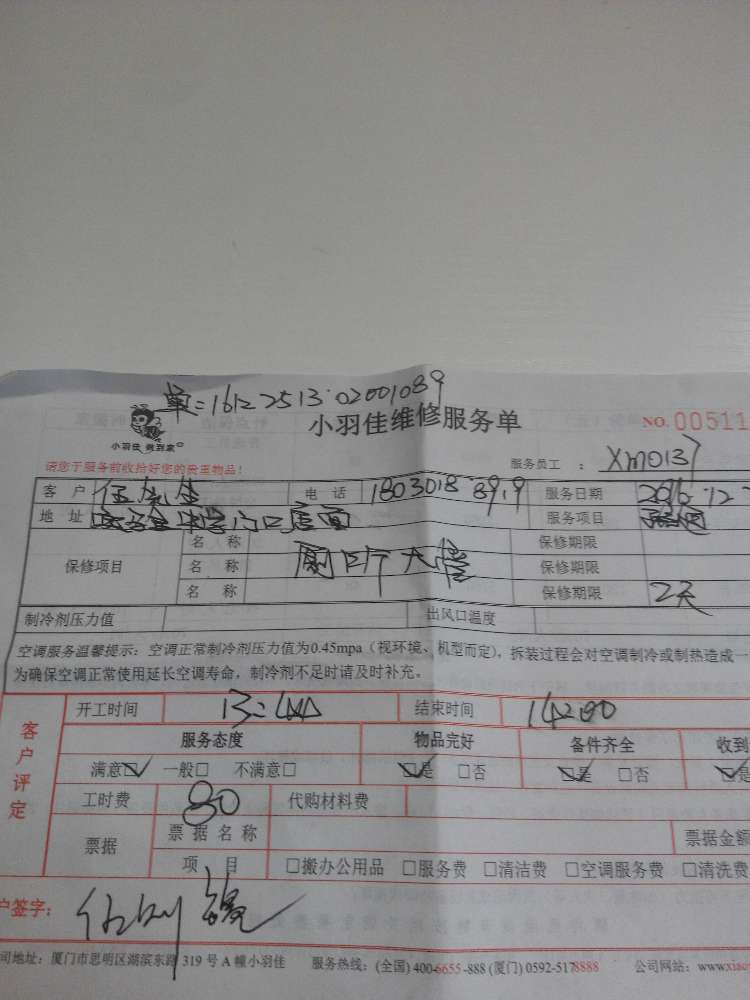 单=1612251302001089
小羽佳 做到家
小羽佳维修服务单
NO. 00511
请您于服务前收拾好您的贵重物品!
服务员工 : Xm0137
客 户 电 话 18030188919 服务日期 2016.12
地 址 中学门口店面 服务项目
保修项目 名 称 保修期限
名 称 保修期限
名 称 保修期限 2天
制冷剂压力值 出风口温度
空调服务温馨提示: 空调正常制冷剂压力值为0.45mpa（视环境、机型而定), 拆装过程会对空调制冷或制热造成一
为确保空调正常使用延长空调寿命，制冷剂不足时请及时补充。
客户评定
开工时间 结束时间 14:00
服务态度 物品完好 备件齐全 收到
满意☑ 一般□ 不满意□ ☑是 □否 ☑是 □否 ☑是
工时费 80 代购材料费
票据 票 据 名 称 票据金额
项 目 □搬办公用品 □服务费 □清洁费 □空调服务费 □清洗费
户签字:
司地址: 厦门市思明区湖滨东路 319 号 A 幢小羽佳 服务热线: (全国) 400-6655-888 (厦门) 0592-5178888 公司网站: www.xiao